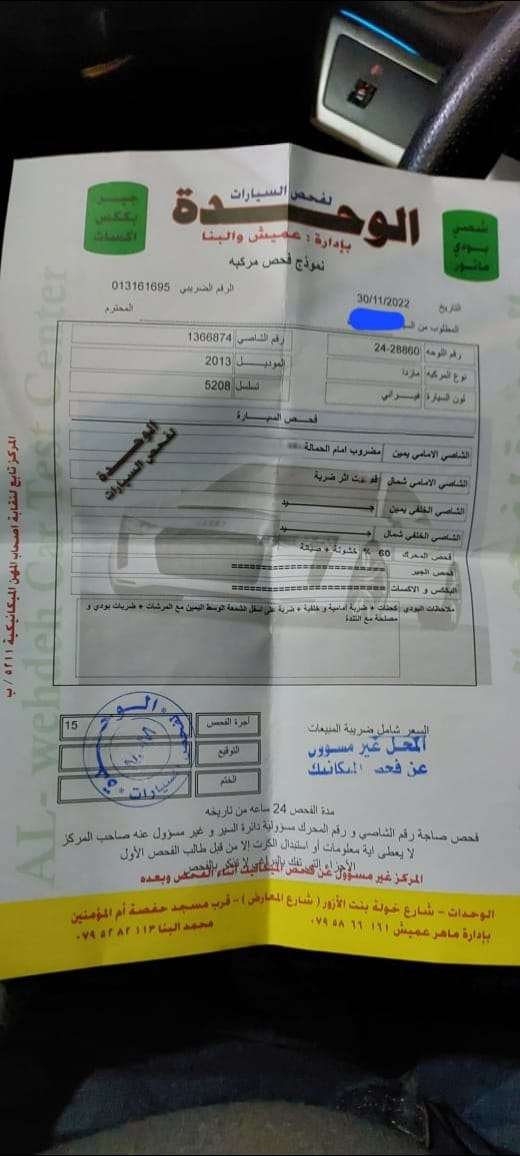 لفحص السيارات
الوحدة
بإدارة : عميش والبنا
جير
بككس
اكسات
شصي
بودي
ماتور
نموذج فحص مركبه
التاريخ 30/11/2022
الرقم الضريبي 013161695
المطلوب من
المحترم
رقم اللوحه 24-28860
رقم الشاصي 1366874
نوع المركبه مازدا
الموديل 2013
لون السيارة فيراني
تسلسل 5208
فحص السيارة
الوحدة
لفحص السيارات
الشاصي الامامي يمين مضروب امام الحمالة
الشاصي الامامي شمال اثر ضربة
الشاصي الخلفي يمين جيد
الشاصي الخلفي شمال جيد
فحص المحرك 60 % خشونة + صيانة
فحص الجير
البككس و الاكسات
ملاحظات البودي كحتات + ضربة أمامية و خلفية + ضربة على اسفل الشمعة الوسط اليمين مع المرشات + ضربات بودي و
مصلحة مع التندة
أجرة الفحص 15
التوقيع
الختم
السعر شامل ضريبة المبيعات
المحل غير مسؤول
عن فحص الميكانيك
مدة الفحص 24 ساعه من تاريخه
فحص صاجة رقم الشاصي و رقم المحرك مسؤولية دائرة السير و غير مسؤول عنه صاحب المركز
لا يعطى اية معلومات أو استبدال الكرت إلا من قبل طالب الفحص الأول
المركز غير مسؤول عن فحص الميكانيك أثناء الفحص وبعده
الوحدات - شارع خولة بنت الأزور ( شارع المعارض ) - قرب مسجد حفصة أم المؤمنين
بإدارة ماهر عميش ٠٧٩٥٨٦٦١٦١ محمد البنا ٠٧٩٥٢٨٢١١٣
المركز تابع لنقابة اصحاب المهن الميكانيكية ٥٢١١ / ب
AL-wehdeh Car Test Center